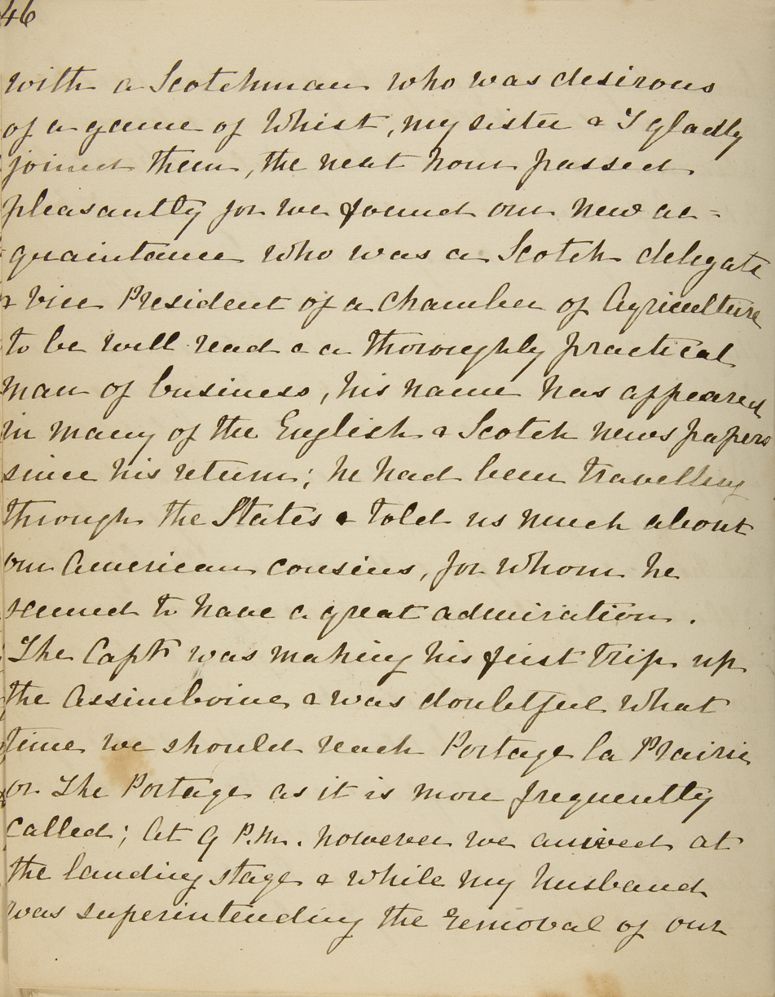 46
with a Scotchman who was desirous
of a game of Whist, my sister & I gladly
joined them, the next hour passed
pleasantly for we found our new ac-
quaintance who was a Scotch delegate
& Vice President of a Chamber of Agriculture
to be well read & a thoroughly practical
man of business, his name has appeared
in many of the English & Scotch newspapers
since his return; he had been travelling
through the States & told us much about
our American cousins, for whom he
seemed to have a great admiration.
The Capt was making his first trip up
the Assiniboine & was doubtful what
time we should reach Portage la Prairie
or The Portage as it is more frequently
called; At 9 P.M. however we arrived at
the landing stage & while my husband
was superintending the removal of our